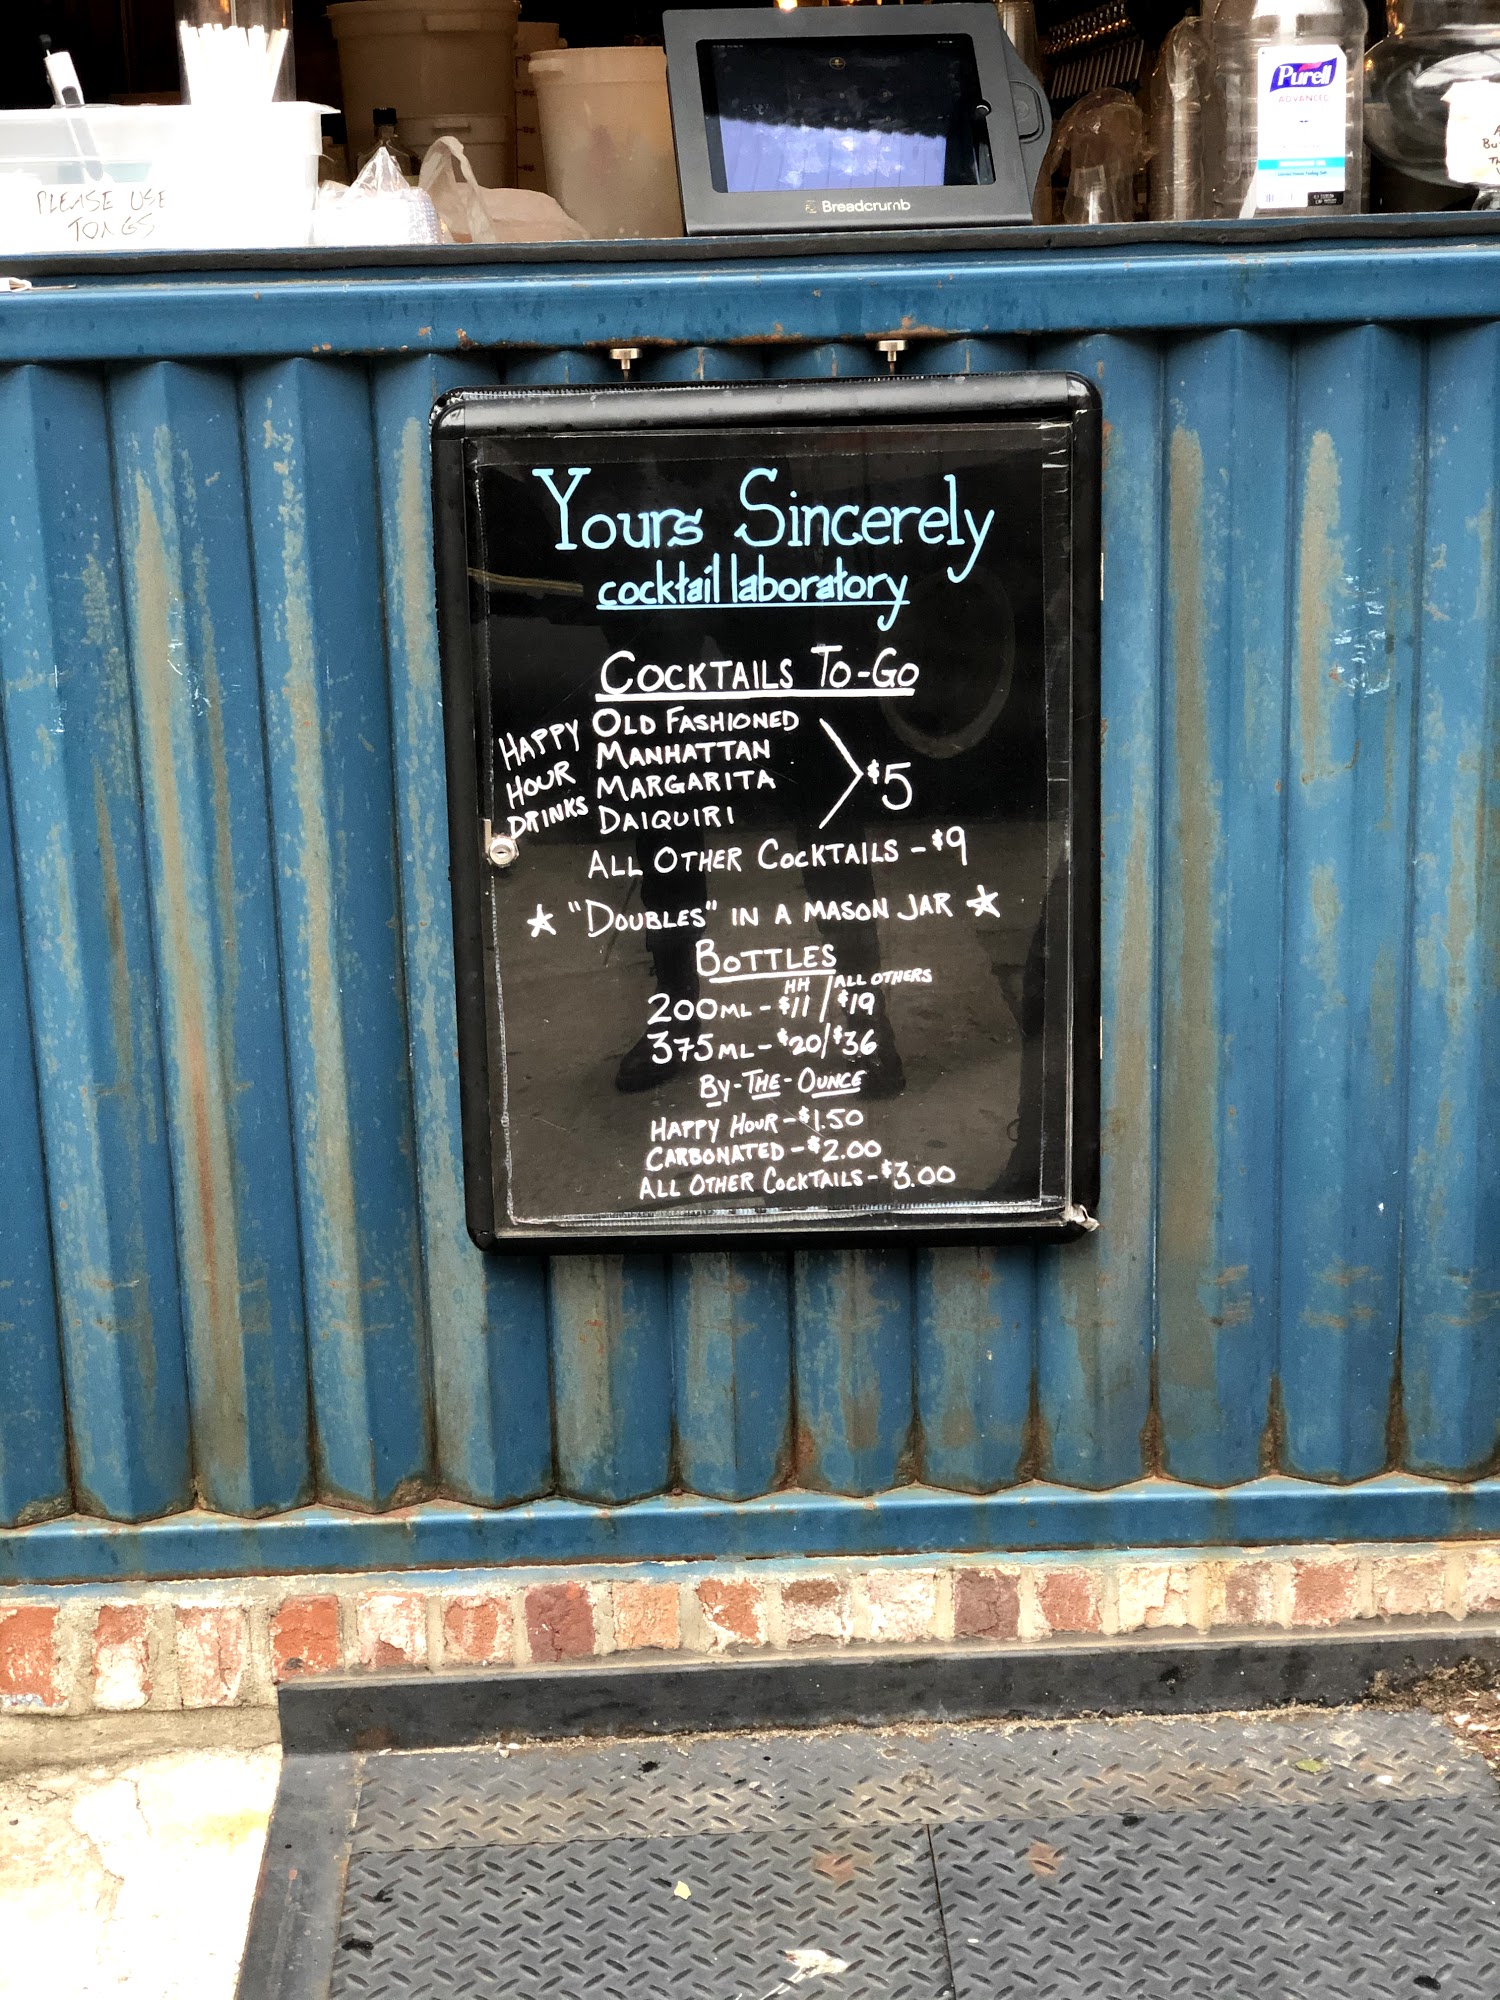 PLEASE USE
TONGS
Breadcrumb
Purell
ADVANCED
Yours Sincerely
cocktail laboratory
COCKTAILS TO-GO
HAPPY
HOUR
DRINKS
OLD FASHIONED
MANHATTAN
MARGARITA
DAIQUIRI
$5
ALL OTHER COCKTAILS - $9
★ "DOUBLES" IN A MASON JAR ★
BOTTLES
HH / ALL OTHERS
200ML - $11 / $19
375ML - $20/$36
BY-THE-OUNCE
HAPPY HOUR - $1.50
CARBONATED - $2.00
ALL OTHER COCKTAILS - $3.00